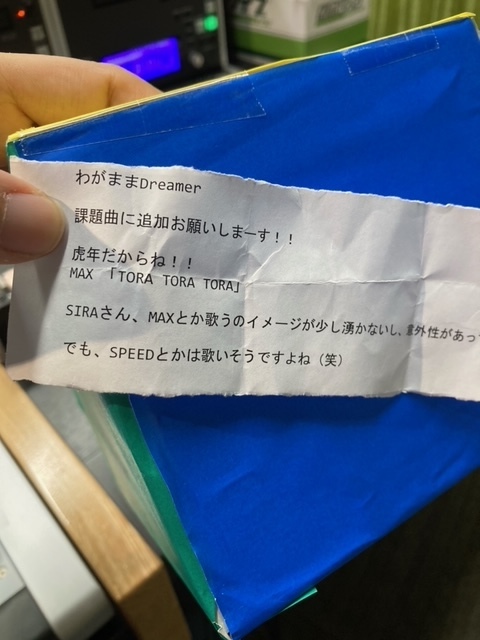 わがままDreamer
課題曲に追加お願いしまーす！！
虎年だからね！！
MAX 「TORA TORA TORA」
SIRAさん、MAXとか歌うのイメージが少し湧かないし、意外性があっ
でも、SPEEDとかは歌いそうですよね（笑）